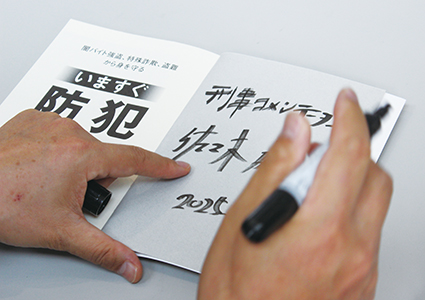 闇バイト強盗、特殊詐欺、盗難
から身を守る
いますぐ
防犯
刑事コメンテーター
佐々木
2025